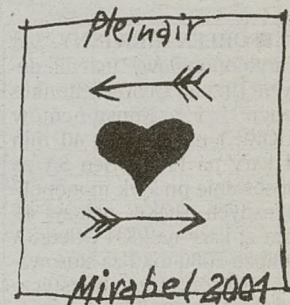 Pleinair
Mirabel 2001